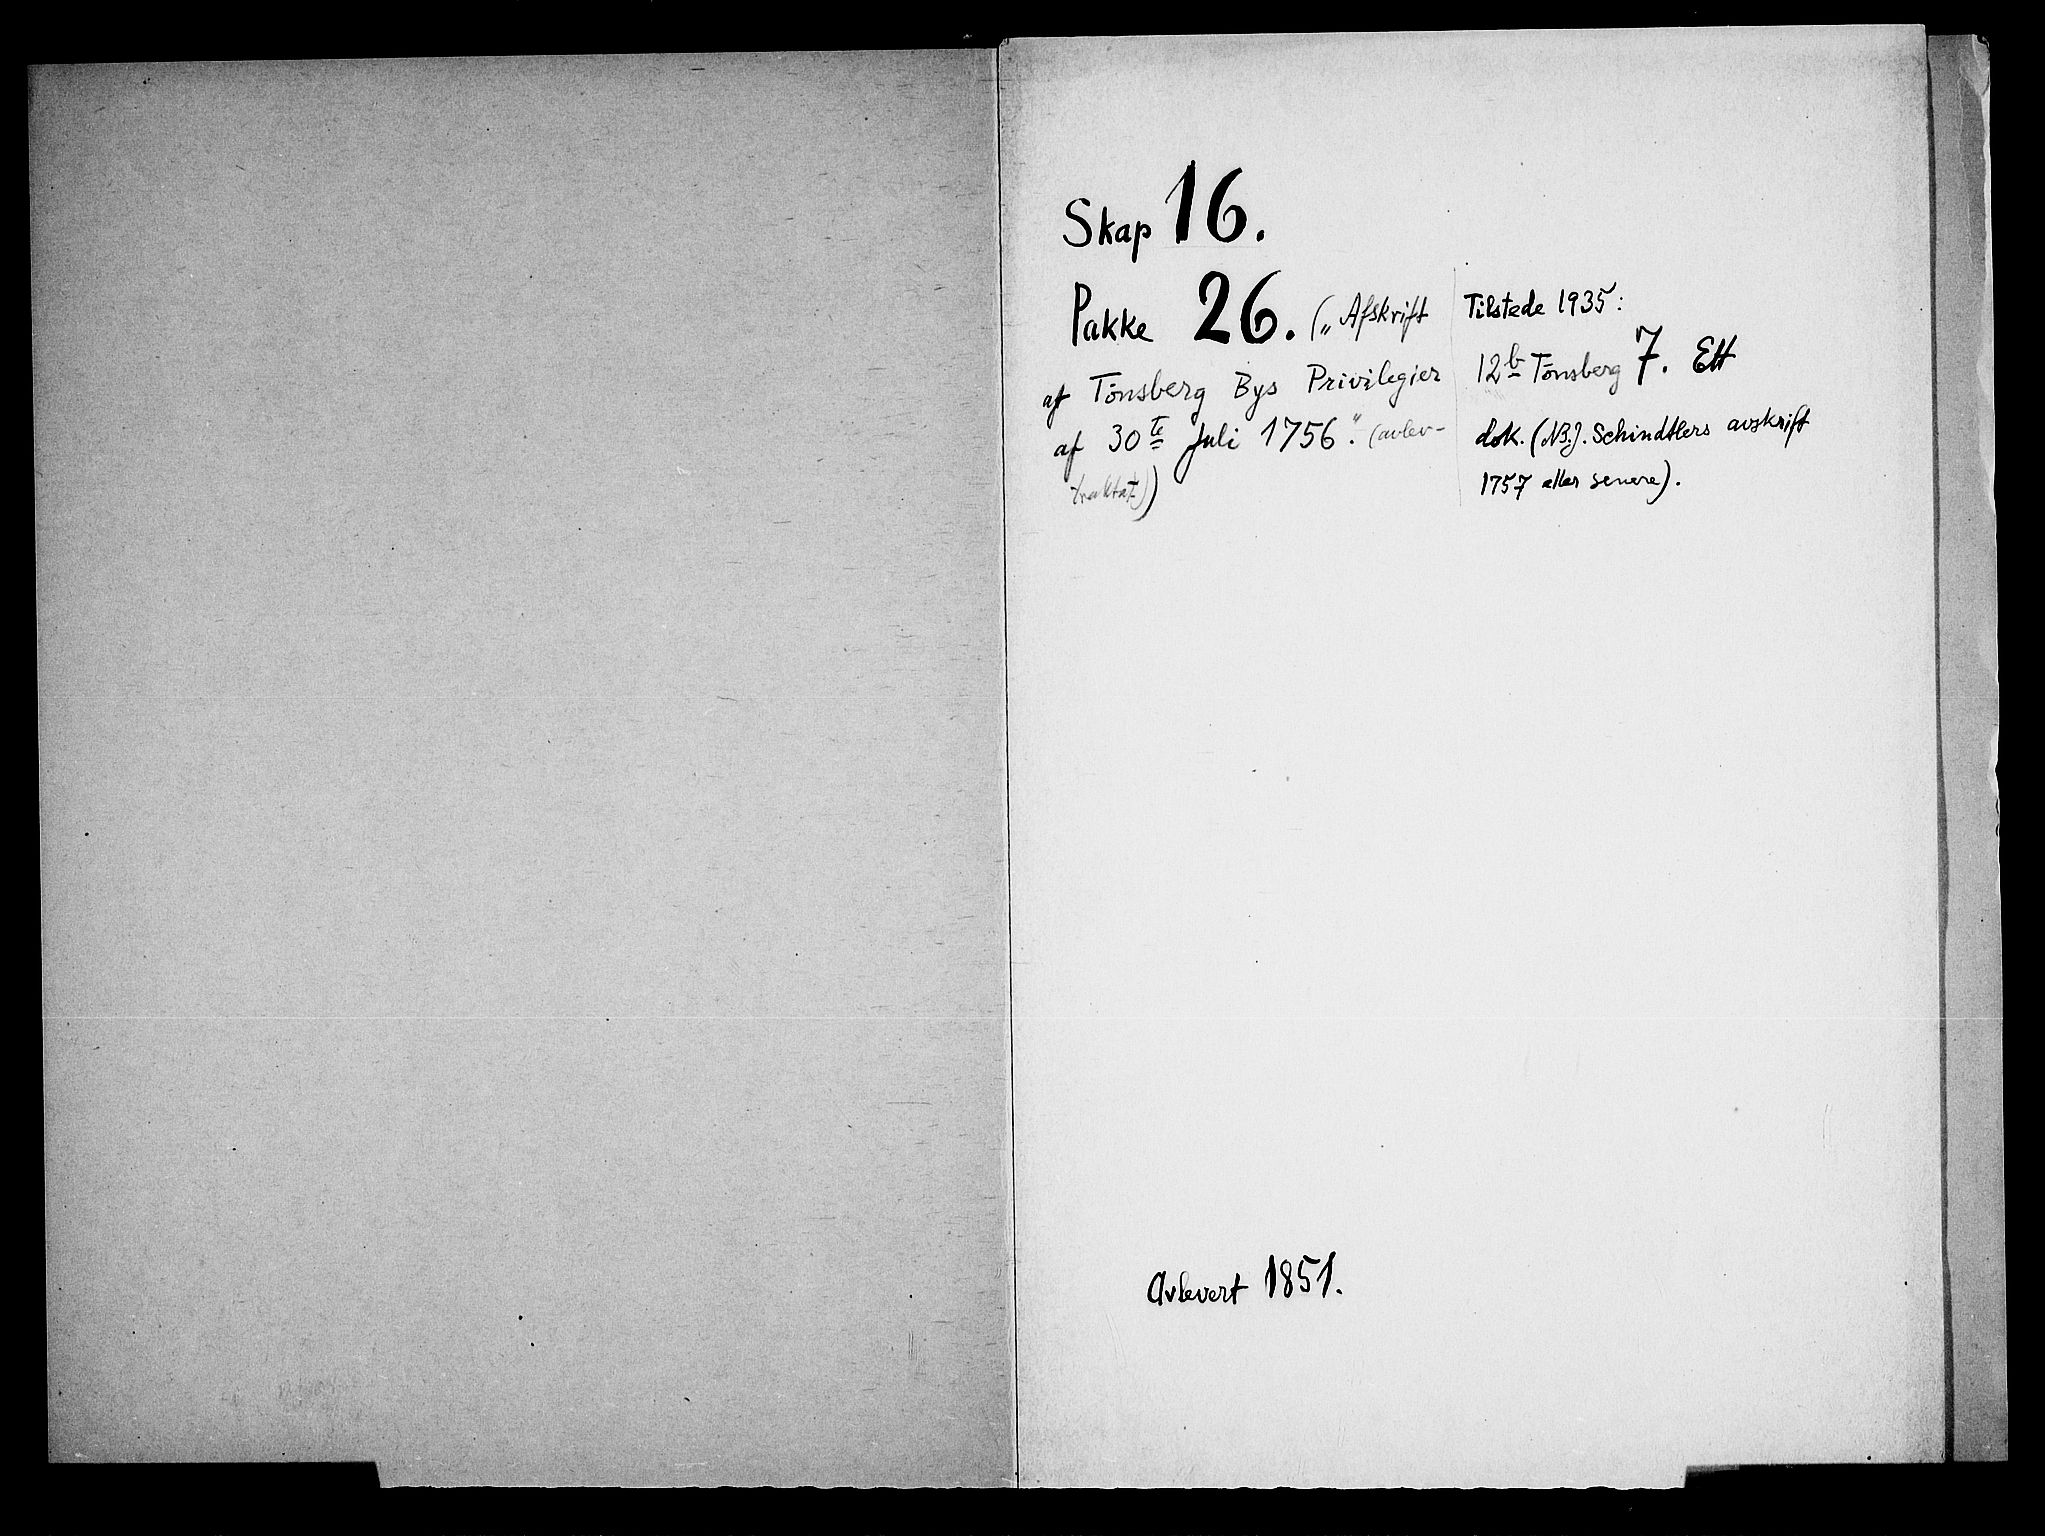 Skap 16.
Pakke 26. („Afskrift
af Tönsberg Bys Privilegier
af 30te Juli 1756." (avlev-
traktat))
Tilstede 1935:
12b Tönsberg 7. Ett
dok. (N.B.J. Schindtlers avskrift
1757 eller senere).
Avlevert 1851.